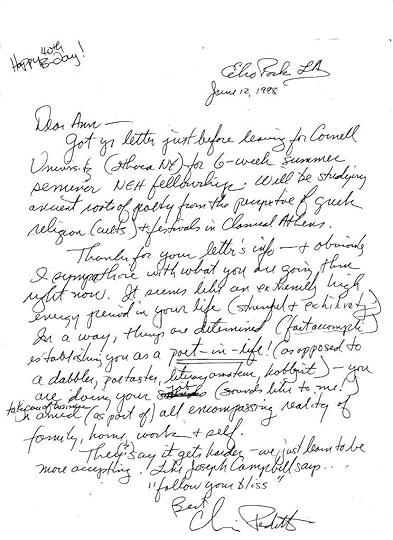 Happy 40th B-Day!
Echo Park LA
June 12, 1998
Dear Ann —
Got yr letter just before leaving for Cornell
University (Ithaca NY) for 6-week summer
seminar NEH fellowship. Will be studying
ancient roots of poetry from the perspective of greek
religion (cults) + festivals in Classical Athens.
Thanks for your letter's info — + obviously
I sympathize with what you are going thru
right now. It seems like an extremely high
energy period in your life (stressful +
In a way, things are determined (fait accompli)
establishing you as a poet-in-life! (as opposed
to a dabbler, poetaster, literary amateur, hobbyist) — you
are doing your (sounds like to me!)
take care of business
in amid (as part of) all encompassing reality of
family, home, work + self.
They say it gets harder — we just learn to be
more accepting. Like Joseph Campbell says...
"follow your bliss"
Best